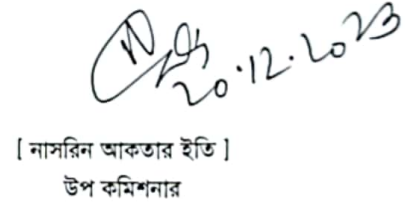 20.12.2023
[ নাসরিন আকতার ইতি ]
উপ কমিশনার